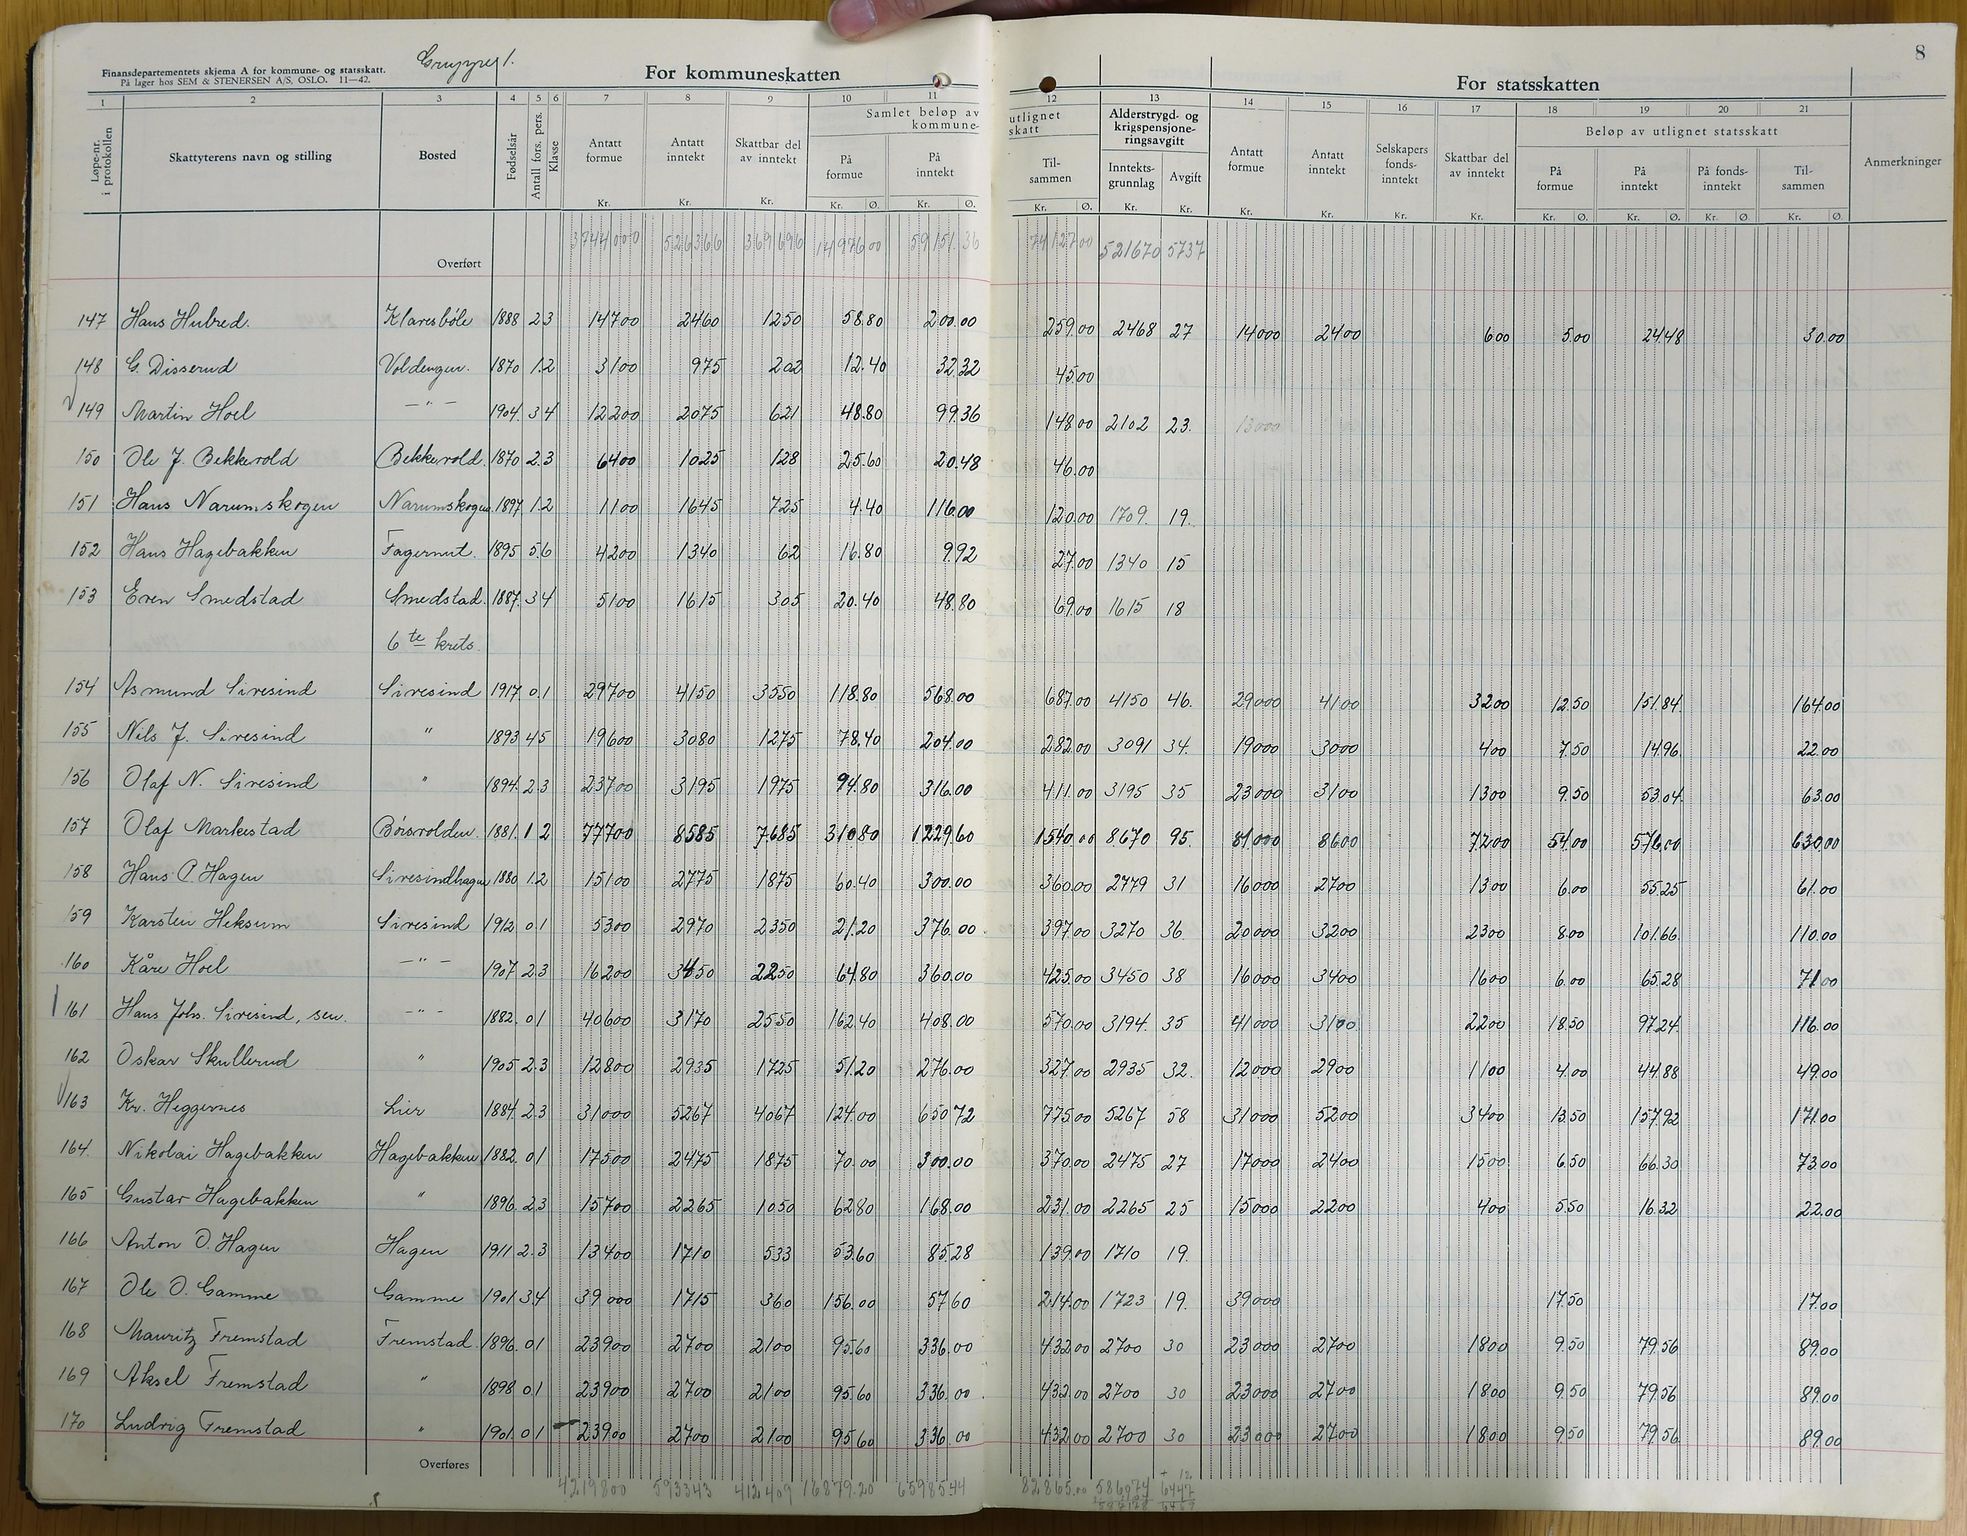 8
Gruppe 1.
Finansdepartementets skjema A for kommune- og statsskatt.
På lager hos SEM & STENERSEN A/S, OSLO. 11—42.
For kommuneskatten
For statsskatten
1 2 3 4 5 6 7 8 9 10 11 12 13 14 15 16 17 18 19 20 21
Løpe-nr. i protokollen
Skattyterens navn og stilling
Bosted
Fødselsår
Antall fors. pers.
Klasse
Antatt formue
Antatt inntekt
Skattbar del av inntekt
Samlet beløp av utlignet kommuneskatt
På formue
På inntekt
Tilsammen
Alderstrygd- og krigspensjoneringsavgift
Inntektsgrunnlag
Avgift
Antatt formue
Antatt inntekt
Selskapers fondsinntekt
Skattbar del av inntekt
Beløp av utlignet statsskatt
På formue
På inntekt
På fondsinntekt
Tilsammen
Anmerkninger
Kr. Kr. Kr. Kr. Ø. Kr. Ø. Kr. Ø. Kr. Kr. Kr. Kr. Kr. Kr. Kr. Ø. Kr. Ø. Kr. Ø. Kr. Ø.
Overført 3744000 526366 369696 14976 00 59151.36 74127.00 521670 5737
147 Hans Hubred. Klaresbøle 1888 2 3 14700 2460 1250 58.80 200.00 259.00 2468 27 14000 2400 600 5.00 24.48 30.00
148 G. Disserud Voldengen. 1870 1.2 3100 975 202 12.40 32.32 45.00
149 Martin Hoel —"— 1904. 3 4 12200 2075 621 48.80 99.36 148.00 2102 23. 13000
150 Ole J. Bekkevold Bekkevold. 1870 2.3 6400 1025 128 25.60 20.48 46.00
151 Hans Narumskogen Narumskogen. 1897 1.2 1100 1645 725 4.40 116.00 120.00 1709. 19.
152 Hans Hagebakken Fagernut. 1895 5.6 4200 1340 62 16.80 9.92 27.00 1340 15
153 Even Smedstad Smedstad. 1887. 3 4 5100 1615 305 20.40 48.80 69.00 1615 18
6te krets.
154 Asmund Sivesind Sivesind 1917. 0.1 29700 4150 3550 118.80 568.00 687.00 4150 46. 29000 4100 3200 12.50 151.84. 164.00
155 Nils J. Sivesind " 1893 4 5 19600 3080 1275 78.40 204.00 282.00 3091 34. 19000 3000 400 7.50 14.96. 22.00
156 Olaf N. Sivesind " 1894. 2 3 23700 3195 1975 94.80 316.00 411.00 3195 35 23000 3100 1300 9.50 53.04. 63.00
157 Olaf Markestad Børsvolden. 1881. 1 2 77700 8585 7685 310.80 1229.60 1540.00 8670 95. 81000 8600 7200 54.00 576.00 630.00
158 Hans P. Hagen Sivesindhagen 1880 1.2 15100 2775 1875 60.40 300.00 360.00 2779 31 16000 2700 1300 6.00 55.25 61.00
159 Karsten Heksum Sivesind 1912 0 1 5300 2970 2350 21.20 376.00. 397.00 3270 36. 20000 3200 2300 8.00 101.66. 110.00
160 Kåre Hoel —"— 1907. 2 3 16200 3450 2250 64.80 360.00 425.00 3450 38 16000 3400 1600 6.00 65.28 71.00
161 Hans Johs. Sivesind, sen. —"— 1882. 0 1 40600 3170 2550 162.40 408.00 570.00 3194. 35 41000 3100 2200 18.50 97.24. 116.00
162 Oskar Skullerud " 1905 2.3 12800 2935 1725 51.20 276.00 327.00 2935 32. 12000 2900 1100 4.00 44.88 49.00
163 Kr. Heggernes Lier 1884. 2.3 31000 5267 4067 124.00 650.72 775.00 5267 58 31000 5200 3400 13.50 157.92 171.00
164. Nikolai Hagebakken Hagebakken 1882. 0 1 17500 2475 1875 70.00 300.00 370.00 2475 27 17000 2400 1500. 6.50 66.30 73.00
165 Gustav Hagebakken " 1896. 2.3 15700 2265 1050 62.80 168.00 231.00 2265 25 15000 2200 400 5.50 16.32 22.00
166 Anton O. Hagen Hagen 1911 2.3 13400 1710 533 53.60 85.28 139.00 1710 19.
167 Ole O. Gamme Gamme 1901. 3.4 39000 1715 360 156.00 57.60 214.00 1723 19. 39000 17.50 17.00
168 Mauritz Fremstad Fremstad. 1896. 0 1 23900 2700 2100 95.60 336.00 432.00 2700 30 23000 2700 1800 9.50 79.56 89.00
169 Aksel Fremstad " 1898 0.1 23900 2700 2100 95.60 336.00. 432.00 2700 30 23000 2700 1800 9.50 79.56 89.00
170 Ludvig Fremstad " 1901. 0 1 23900 2700 2100 95.60 336.00 432.00 2700 30 23000 2700 1800 9.50 79.56 89.00
Overføres 4219800 593343 412409 16879.20 65985.44 82865.00 586974 6447
+ 12.